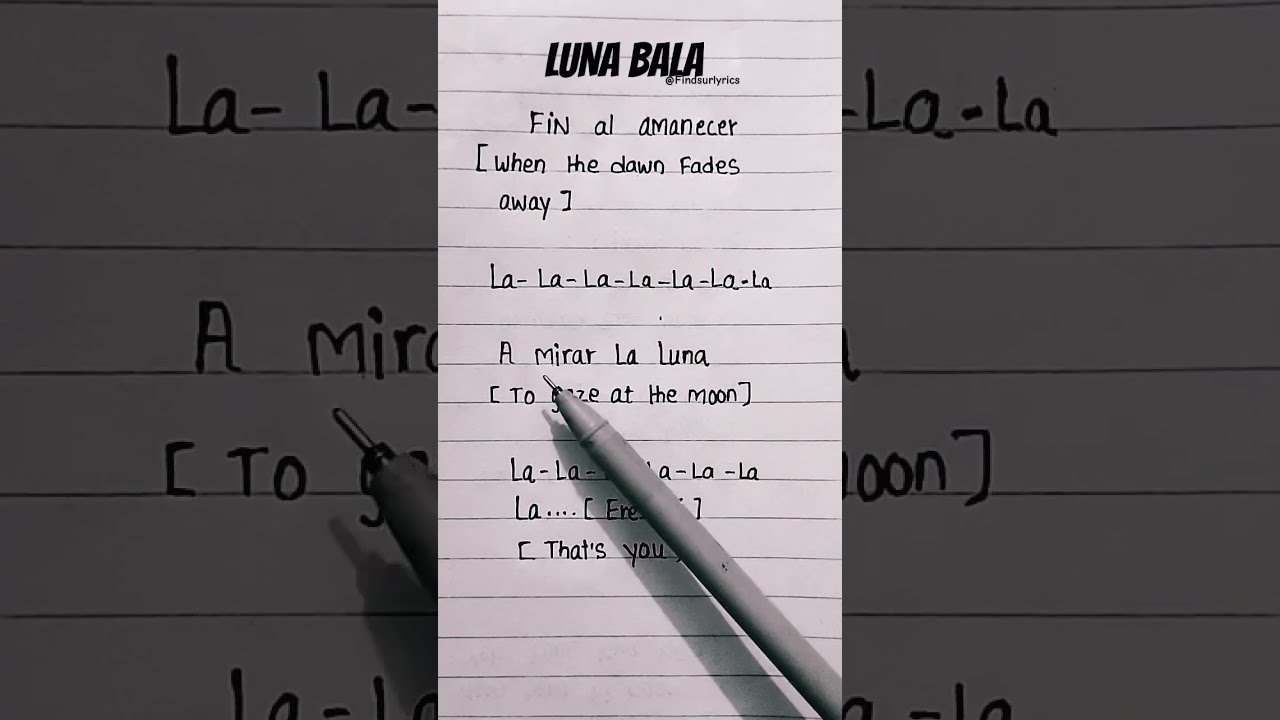 LUNA BALA
@Findsurlyrics
FiN al amanecer
[ When the dawn Fades
away ]
La- La- La-La-La-La-La
A mirar La Luna
[ To gaze at the moon]
La-La- La-La-La
La.... [ ]
[ That's you